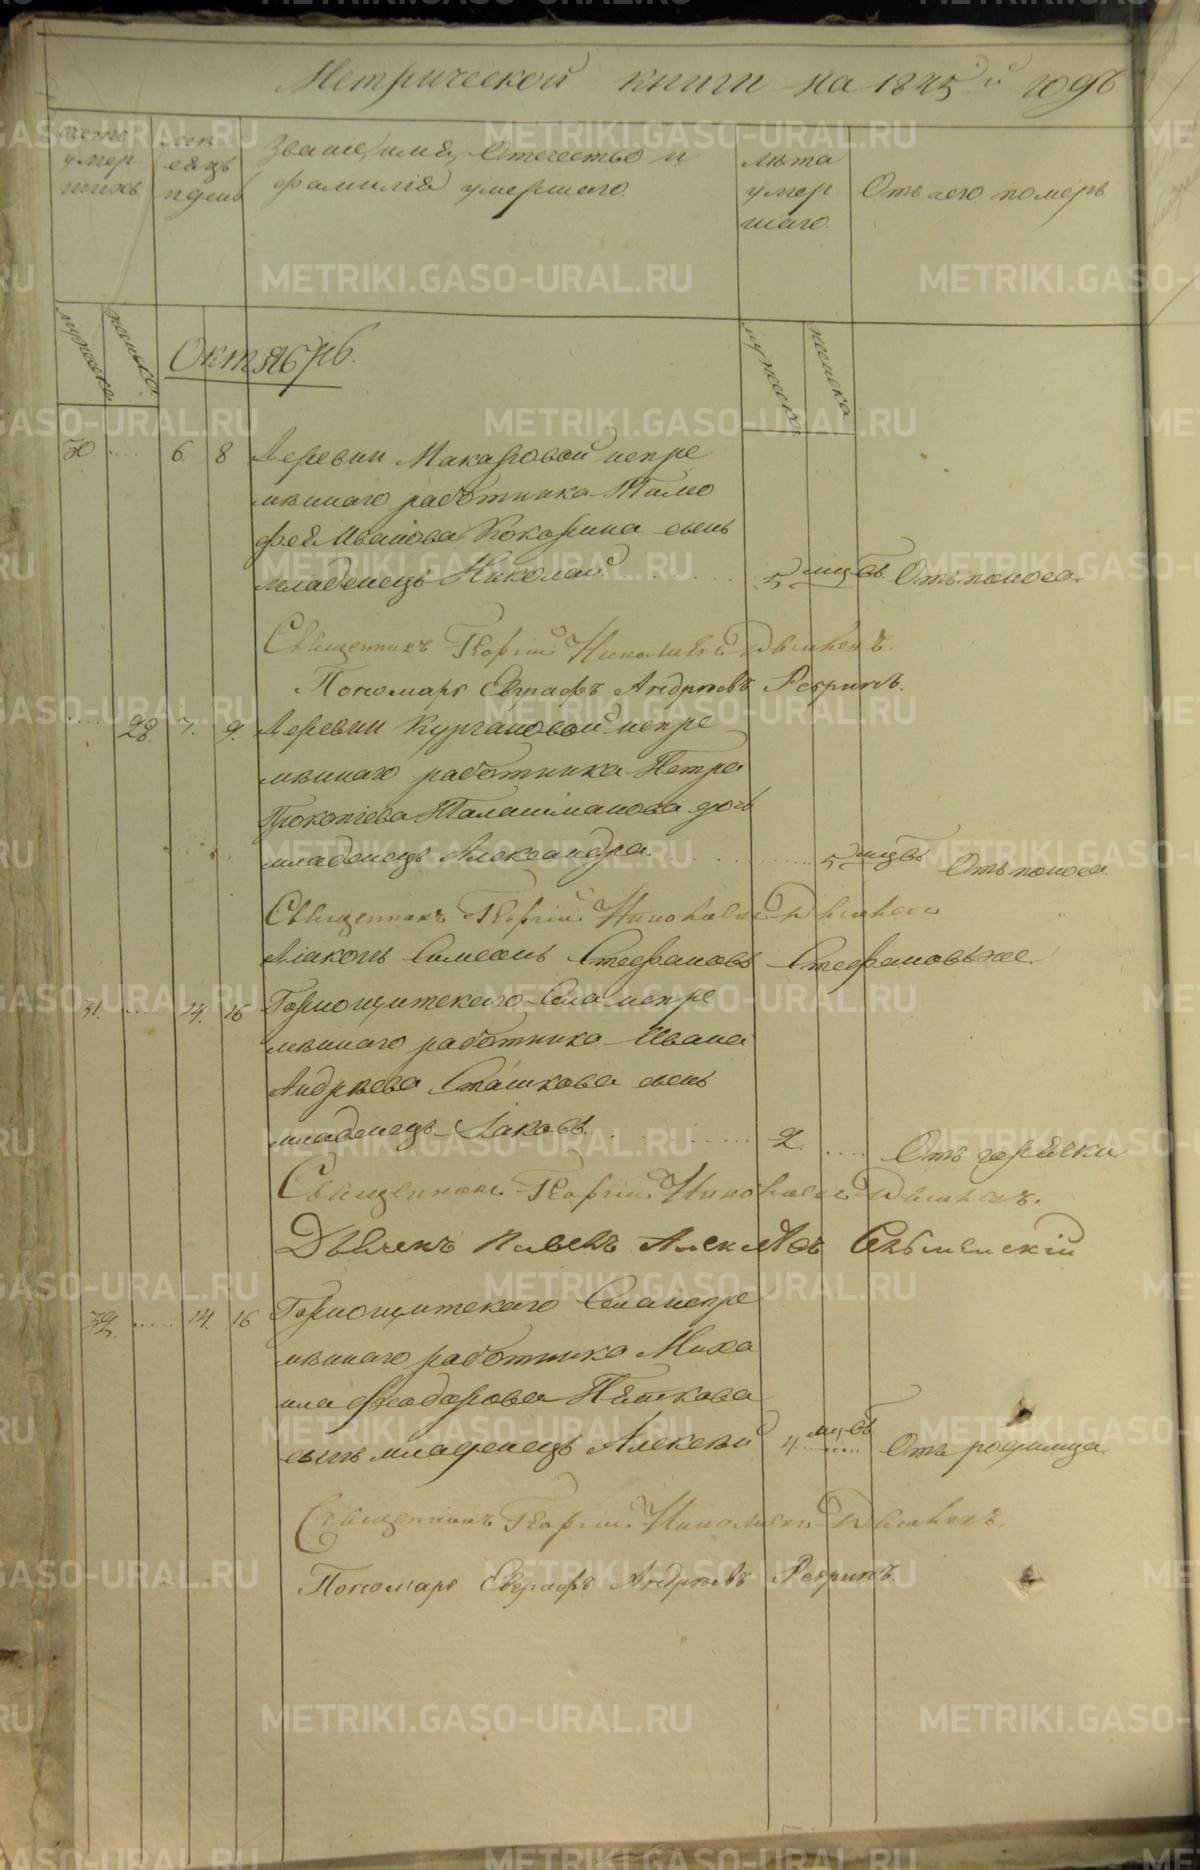 Метрической книги на 1845й годъ
счетъ умершихъ
мѣсяцъ и день
Званiе, имя, отечество и
фамилiя умершаго.
лѣта
умер
шаго.
Отъ чего померъ
мужеска
женска
Октябрь.
мужеска
женска
30. .... 6. 8 Деревни Макаровой непре
мѣннаго работника Тимо
фея Иванова Кокорина сынъ
младенецъ Николай. 5 мцвъ. Отъ поноса.
Священникъ Георгiй Николаевъ
Пономарь Евграфъ Андреевъ Ребринъ.
.... 28. 7. 9. Деревни Кургановой непре
мѣннаго работника Петра
Прокопьева Талашманова дочь
младенецъ Александра. 5 мцвъ Отъ поноса.
Священникъ Георгiй Николаевъ
Дiаконъ Симеонъ Стефановъ Стефановъ же
31. .... 14. 16 Горнощитскаго Села непре
мѣннаго работника Ивана
Андреева Сташкова сынъ
младенецъ Iаковъ. 2. .... Отъ горячки
Священникъ Георгiй Николаевъ
Дьячекъ Павелъ Алексѣевъ
32. .... 14. 16 Горнощитскаго Села непре
мѣннаго работника Миха
ила Феодорова Пяткова
сынъ младенецъ Алексѣй 4 мцвъ Отъ родимца.
Священникъ Георгiй Николаевъ
Пономарь Евграфъ Андреевъ Ребринъ.
METRIKI.GASO-URAL.RU